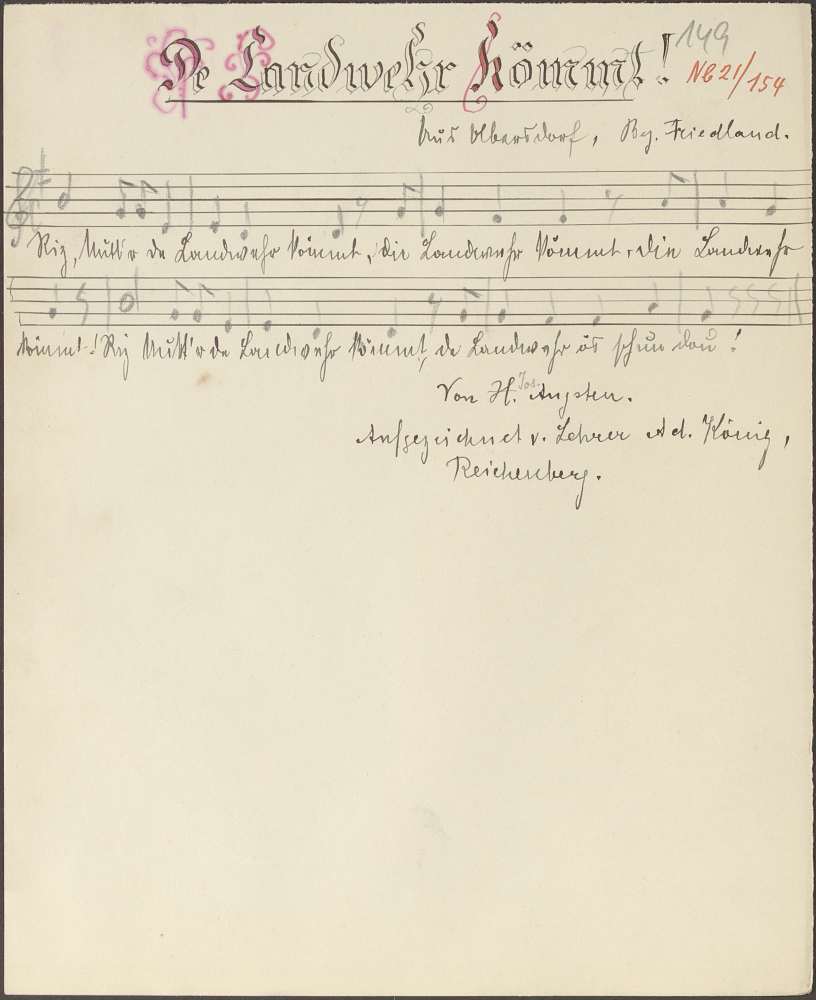 De Landwehr kömmt!
149
NB 21/154
Aus Olbersdorf, Bg. Friedland.
Riz, Mutt'r de Landwehr kömmt, die Landwehr kömmt, die Landwehr
kömmt! Riz Mutt'r de Landwehr kömmt, de Landwehr ös schun dou!
Von H. Jos. Augsten.
Aufgezeichnet v. Lehrer Ad. König,
Reichenberg.